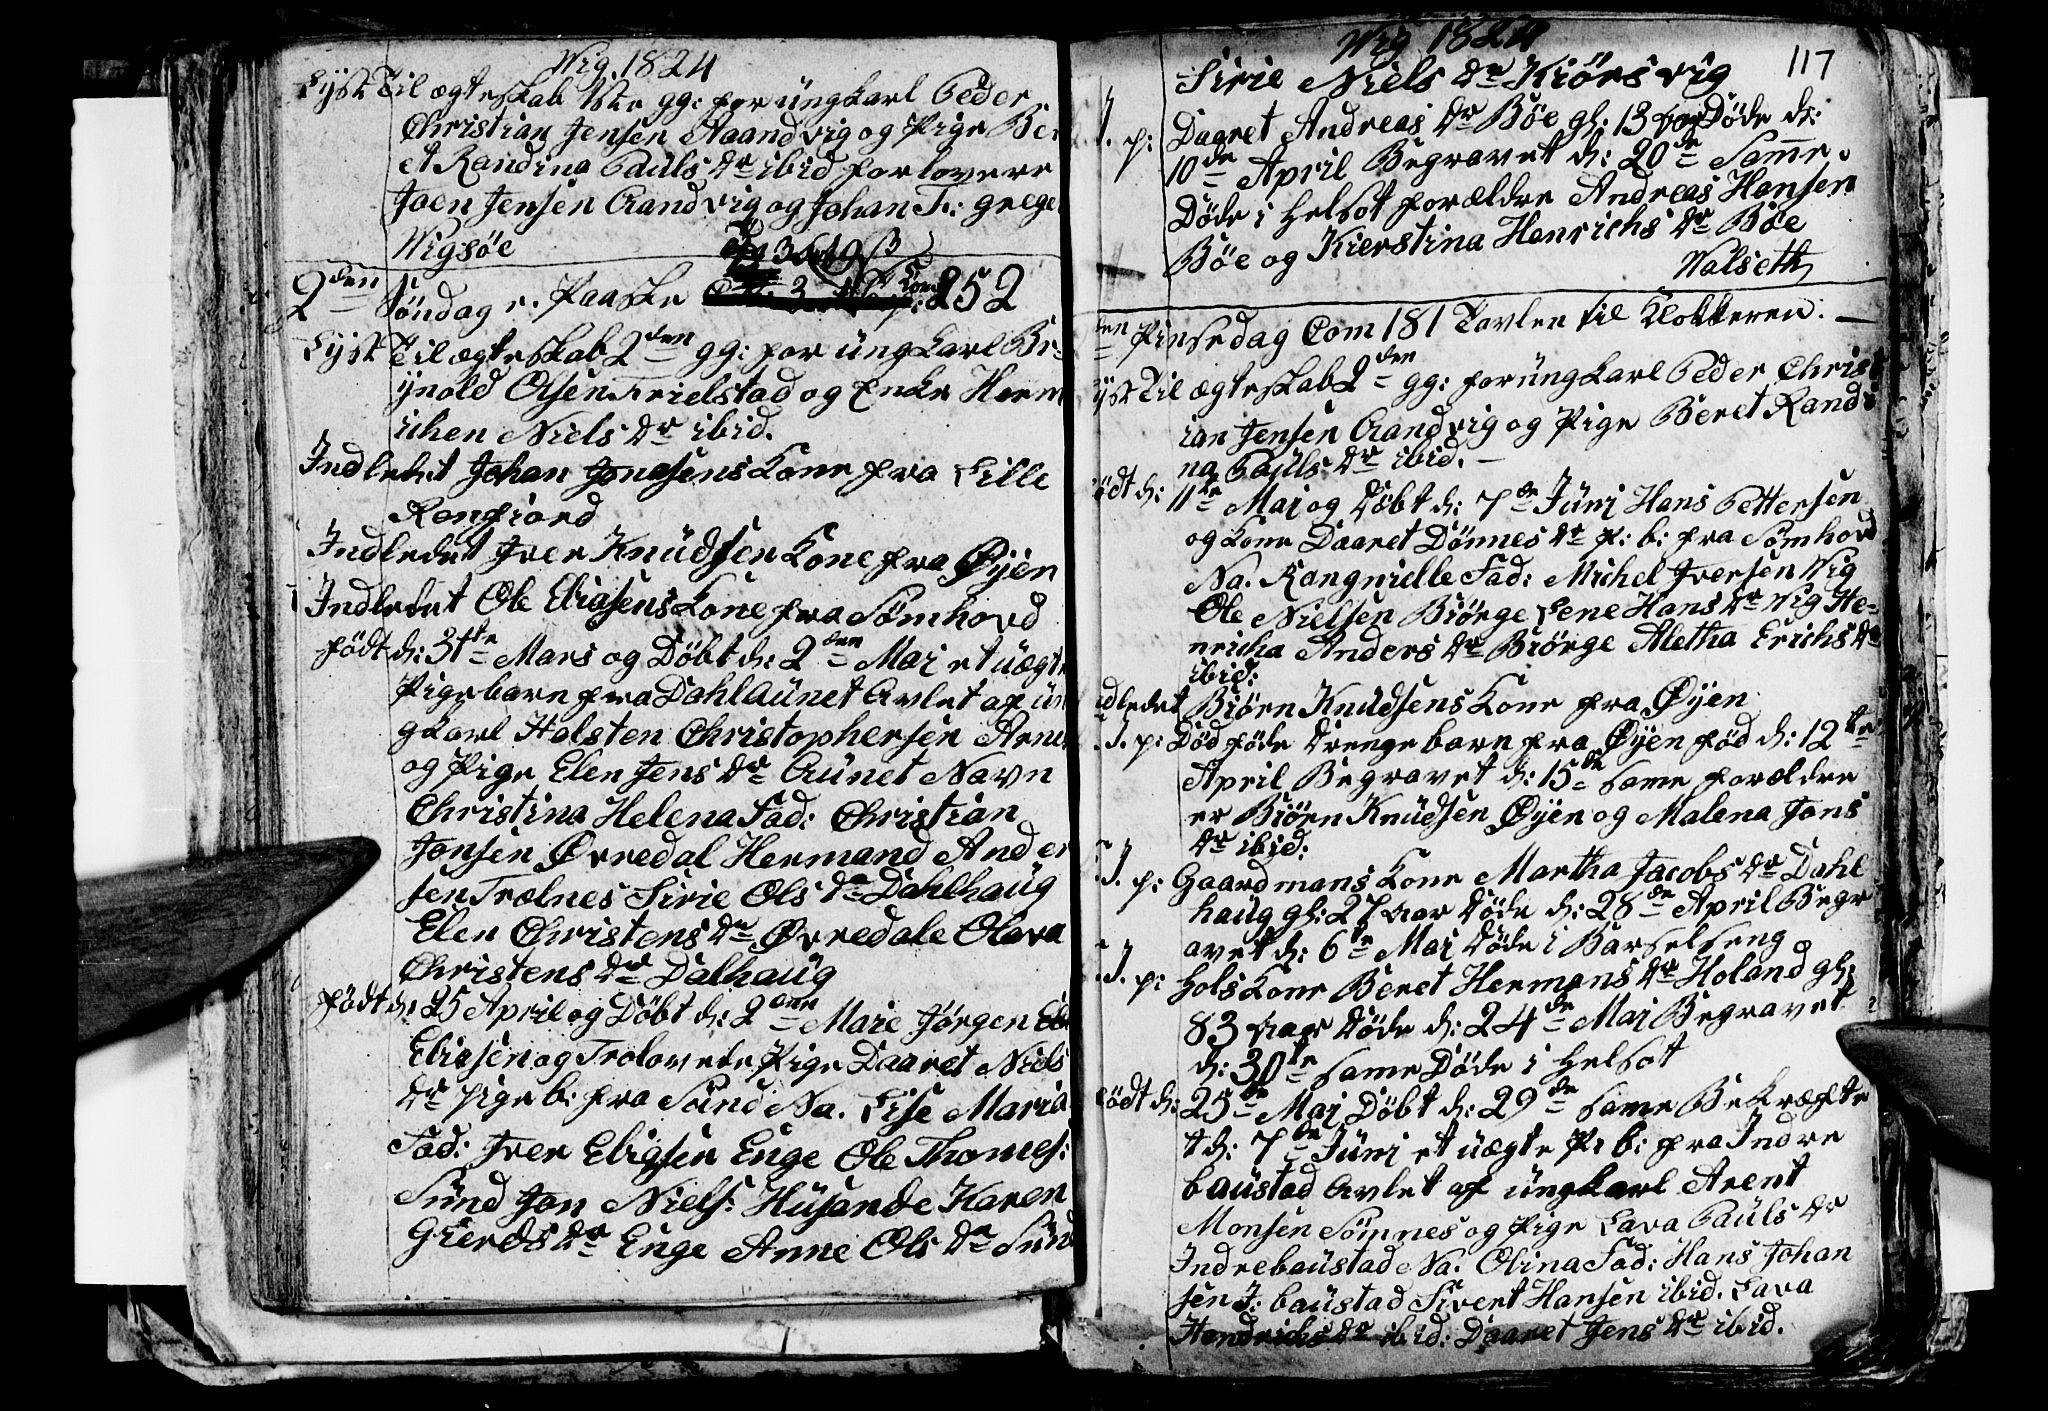 Wig 1824
Lyst Til ægteskab 1ste gg: for ungkarl Peder
Christian Jensen Aaandvig og Pige Ber
et Randina Pauls dr ibid forlovere
Joen Jensen Aandvig og Johan
Wigsøe
2den Søndag e. Paaske Com: 252
Lyst Til ægteskab 2den gg: for ungkarl Br-
ynold Olsen Trielstad og Enke Herm
ichen Niels dr ibid.
Indledet Johan Jonasens Kone fra Lille
Rangfiord
Indledet Iver Knudsen Kone fra Øyen
Indledet Ole Eliasens Kone fra Sømhovd
født d: 31te Mars og Døbt d: 2den Mai et uægte
Pigebarn fra Dahlaunet Avlet af un
gkarl Halsten Christophersen
og Pige Elen Jens dr Aunet Navn
Christina Helena Fad: Christian
Jonsen Øvredal Hermand Ander
sen Trælnes Sirie Ols dr Dahlhaug
Elen Christens dr Øvredale Olava
Christens dr Dalhaug
født d: 25 April og Døbt d: 2den Maie Jørgen
Eliasen og Trolovede Pige Daaret Niels
dr Pige b: fra Sund Na. Lise Maria
Fad: Iver Eliasen Enge Ole Thomes:
Sund Jon Niels: Husande Karen
Gierds dr Enge Anne Ols dr Sund
Wig 1824
117
Sirie Niels dr Kiørsvig
J. p: Daaret Andreas dr Bøe gl: 13 aar Døde d:
10de April Begravet d: 20de Samme.
Døde i Helsot forældre Andreas Hansen
Bøe og Kierstina Henrichs dr Bøe
Walseth
den Pinsedag Com 181 Tavlen til Klokkeren: —
yst Til ægteskab 2den gg: for ungkarl Peder Christ
ian Jensen Aandvig og Pige Beret Randi
na Pauls dr ibid. —
ødt d: 11te Mai og Døbt d: 7de Juni Hans Pettersen
og Kone Daaret Dønnes dr P: b: fra Sømhovd
Na. Rangnielle Fad: Michel Iversen Wig
Ole Nielsen Biørge Lene Hans dr Wig He-
nricha Anders dr Biørge Aletha Erichs dr
ibid:
ndledet Biørn Knudsens Kone fra Øyen
J. p: Dødføde Drengebarn fra Øyen fød d: 12te
April Begravet d: 15de same forældre
er Biørn Knudsen Øyen og Malena Jons
dr ibid:
J. p: Gaardmans Kone Martha Jacobs dr Dahl
haug gl: 27 aar Døde d: 28de April Begr
avet d: 6te Mai Døde i Barselseng
J. p: Hols Kone Beret Hermans dr Holand gl:
83 aar Døde d: 24de Mai Begravet
d: 30te same Døde i Helsot
ødt d: 25de Mai Døbt d: 29de same Bekræfte
t d: 7de Juni et uægte Pi b: fra Indre
baustad Avlet af ungkarl Arent
Monsen Sømnes og Pige Lava Pauls dr
Indrebaustad Na. Olina Fad: Hans Johan
sen I: baustad Sivert Hansen ibid. Lava
Hendrichs dr ibid: Daaret Jens dr ibid.